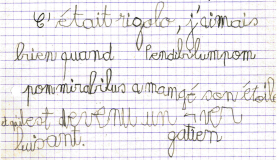 C'était rigolo, j'aimais
bien quand Pendibilumpom
pommirabilus a mangé son étoile
est devenu un ver
luisant. gatien